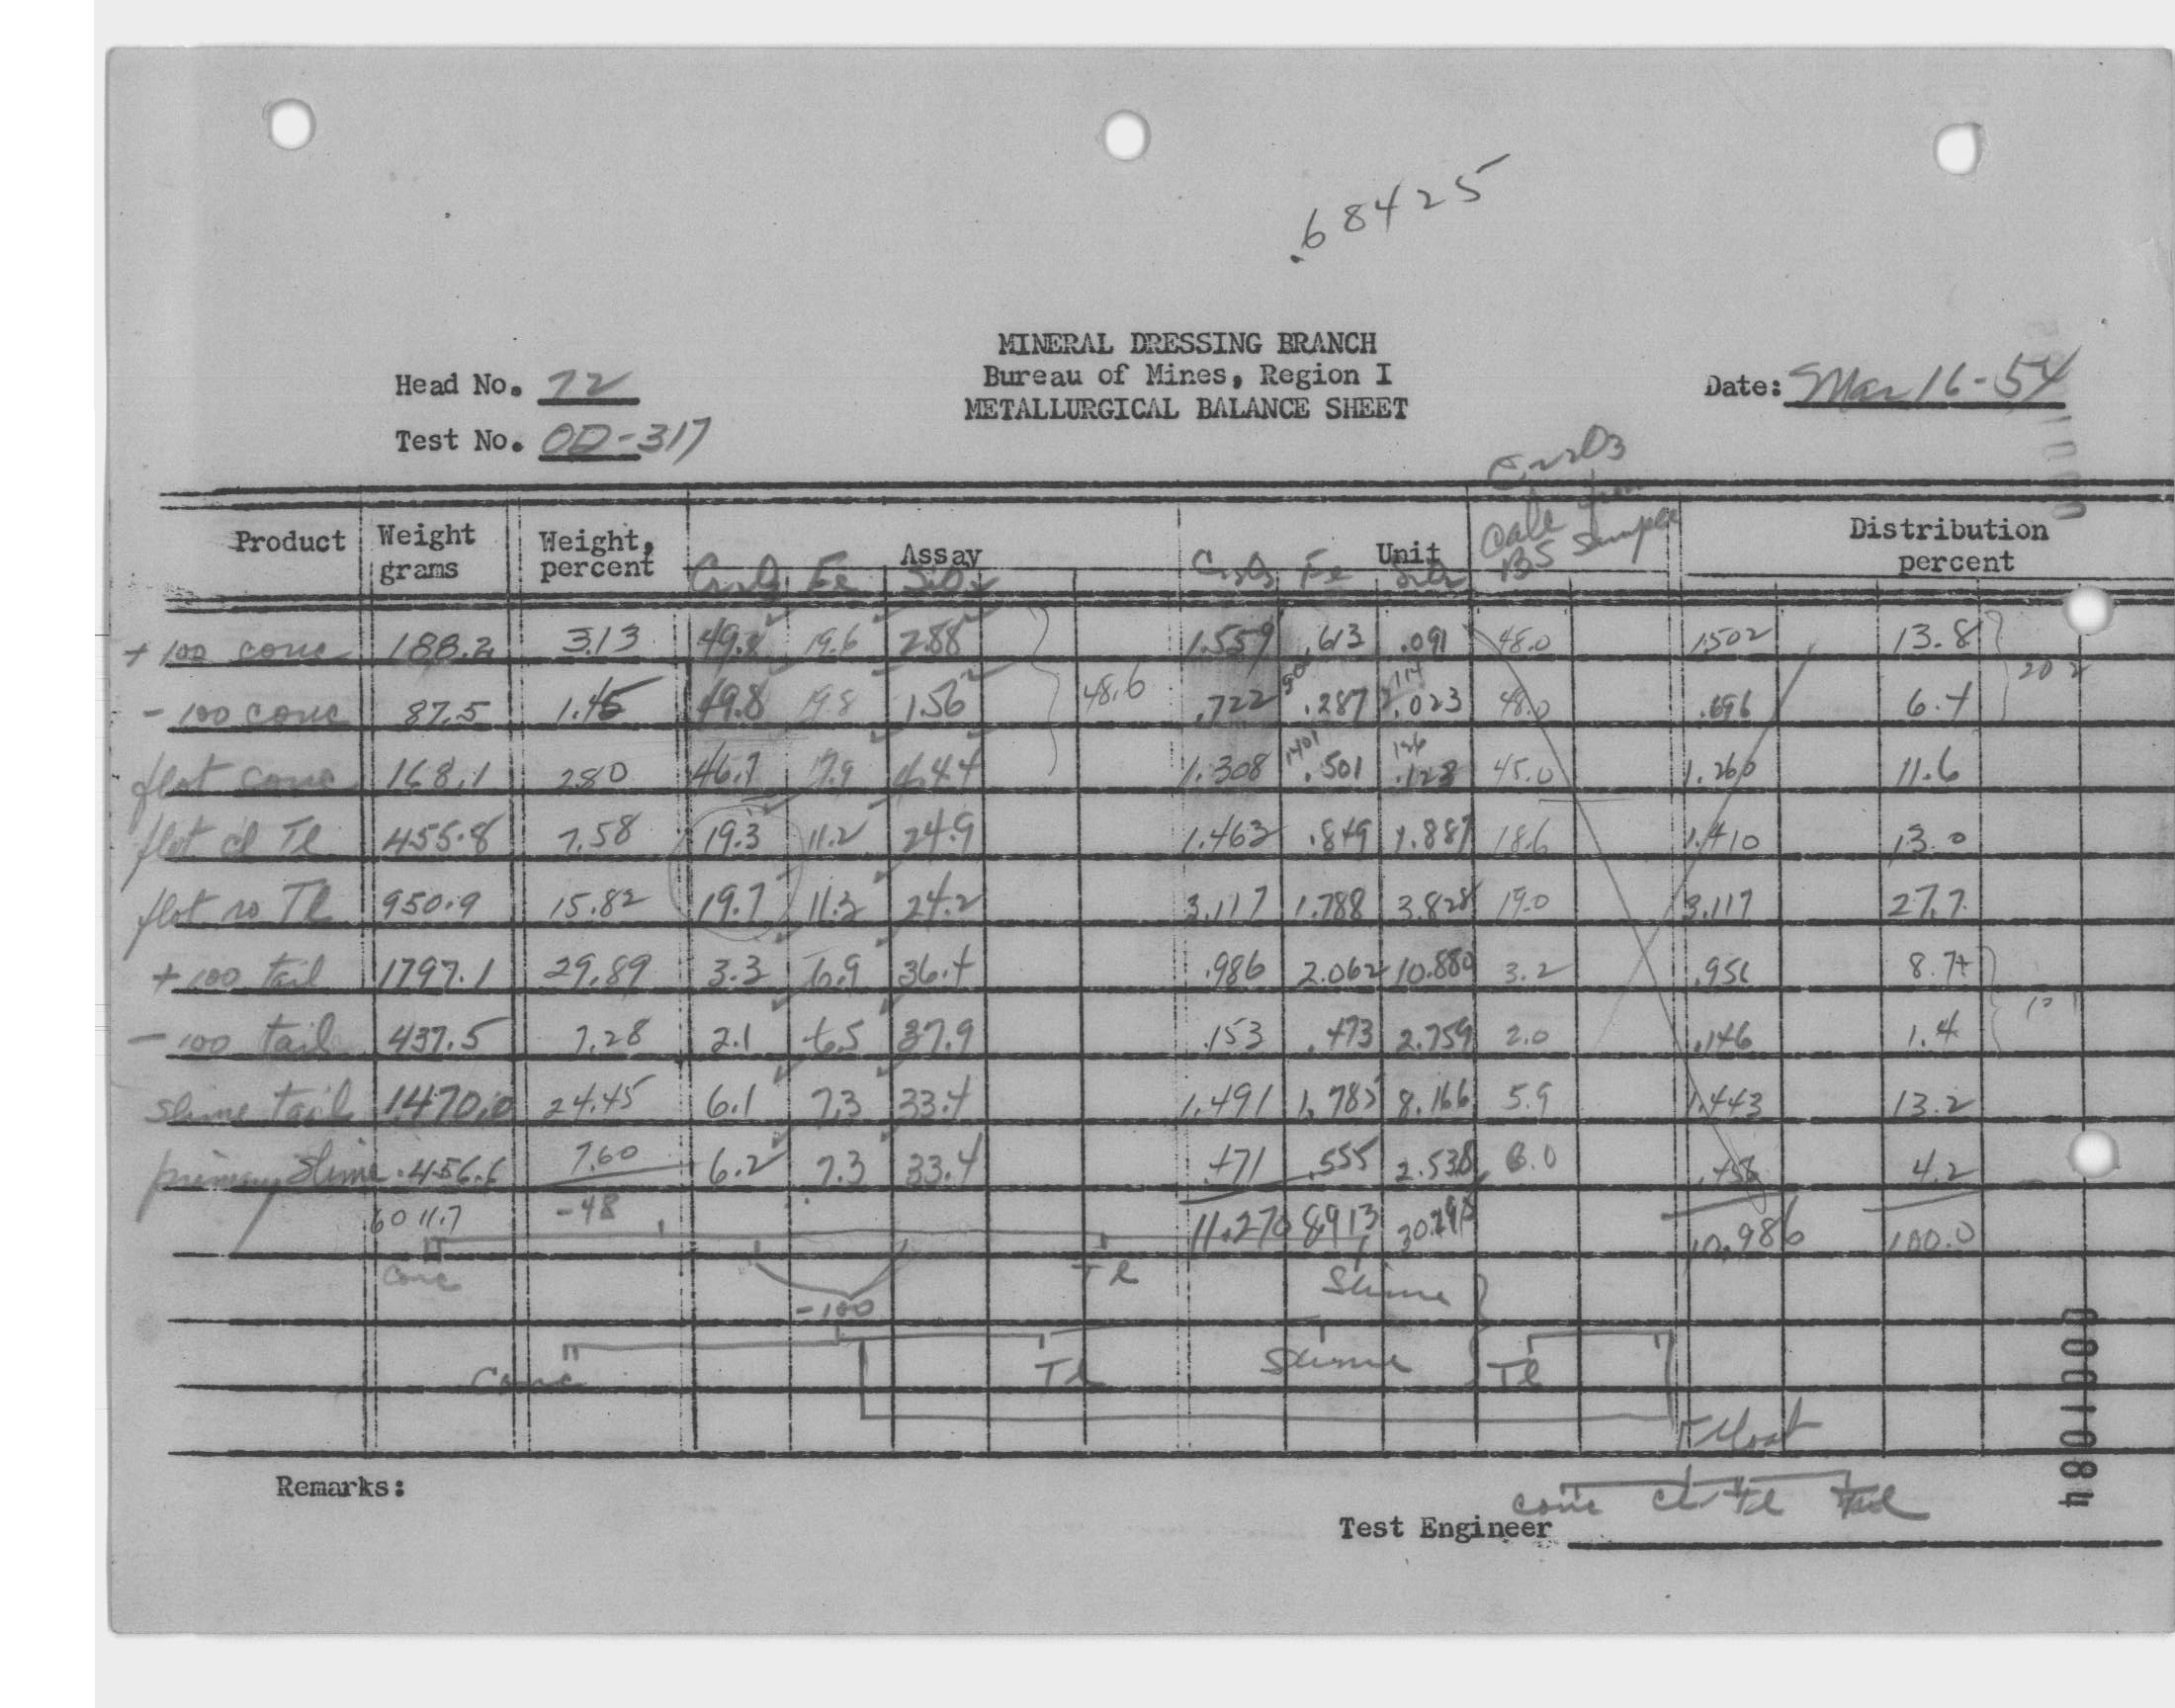 .68425
MINERAL DRESSING BRANCH
Bureau of Mines, Region I
METALLURGICAL BALANCE SHEET
Head No. 72
Test No. OD-317
Date: Mar 16-54
Cr2O3
Calc from
BS Sample
Product Weight grams Weight, percent Assay Unit Distribution percent
Cr2O3 Fe SiO2 Cr2O3 Fe SiO2
+100 conc 188.2 3.13 49.8 19.6 2.88 1.559 .613 .091 48.0 1.502 13.8
20.2
-100 conc 87.5 1.45 49.8 19.8 1.56 48.6 .722 .287 .023 48.0 .696 6.4
flot conc 168.1 2.80 46.7 17.9 4.44 1.308 .501 .128 45.0 1.260 11.6
flot cl Tl 455.8 7.58 19.3 11.2 24.9 1.463 .849 1.887 18.6 1.410 13.0
flot ro Tl 950.9 15.82 19.7 11.3 24.2 3.117 1.788 3.828 19.0 3.117 27.7
+100 tail 1797.1 29.89 3.3 6.9 36.4 .986 2.062 10.880 3.2 .956 8.7
-100 tail 437.5 7.28 2.1 6.5 37.9 .153 .473 2.759 2.0 .146 1.4
slime tail 1470.0 24.45 6.1 7.3 33.4 1.491 1.785 8.166 5.9 1.443 13.2
primary slime 456.6 7.60 6.2 7.3 33.4 .471 .555 2.538 6.0 .456 4.2
6011.7 -48 11.270 8.913 10.986 100.0
conc -100 Tl Slime
Conc Tl Slime Tl
Float
conc cl Tl Tail
Remarks:
Test Engineer
0001084